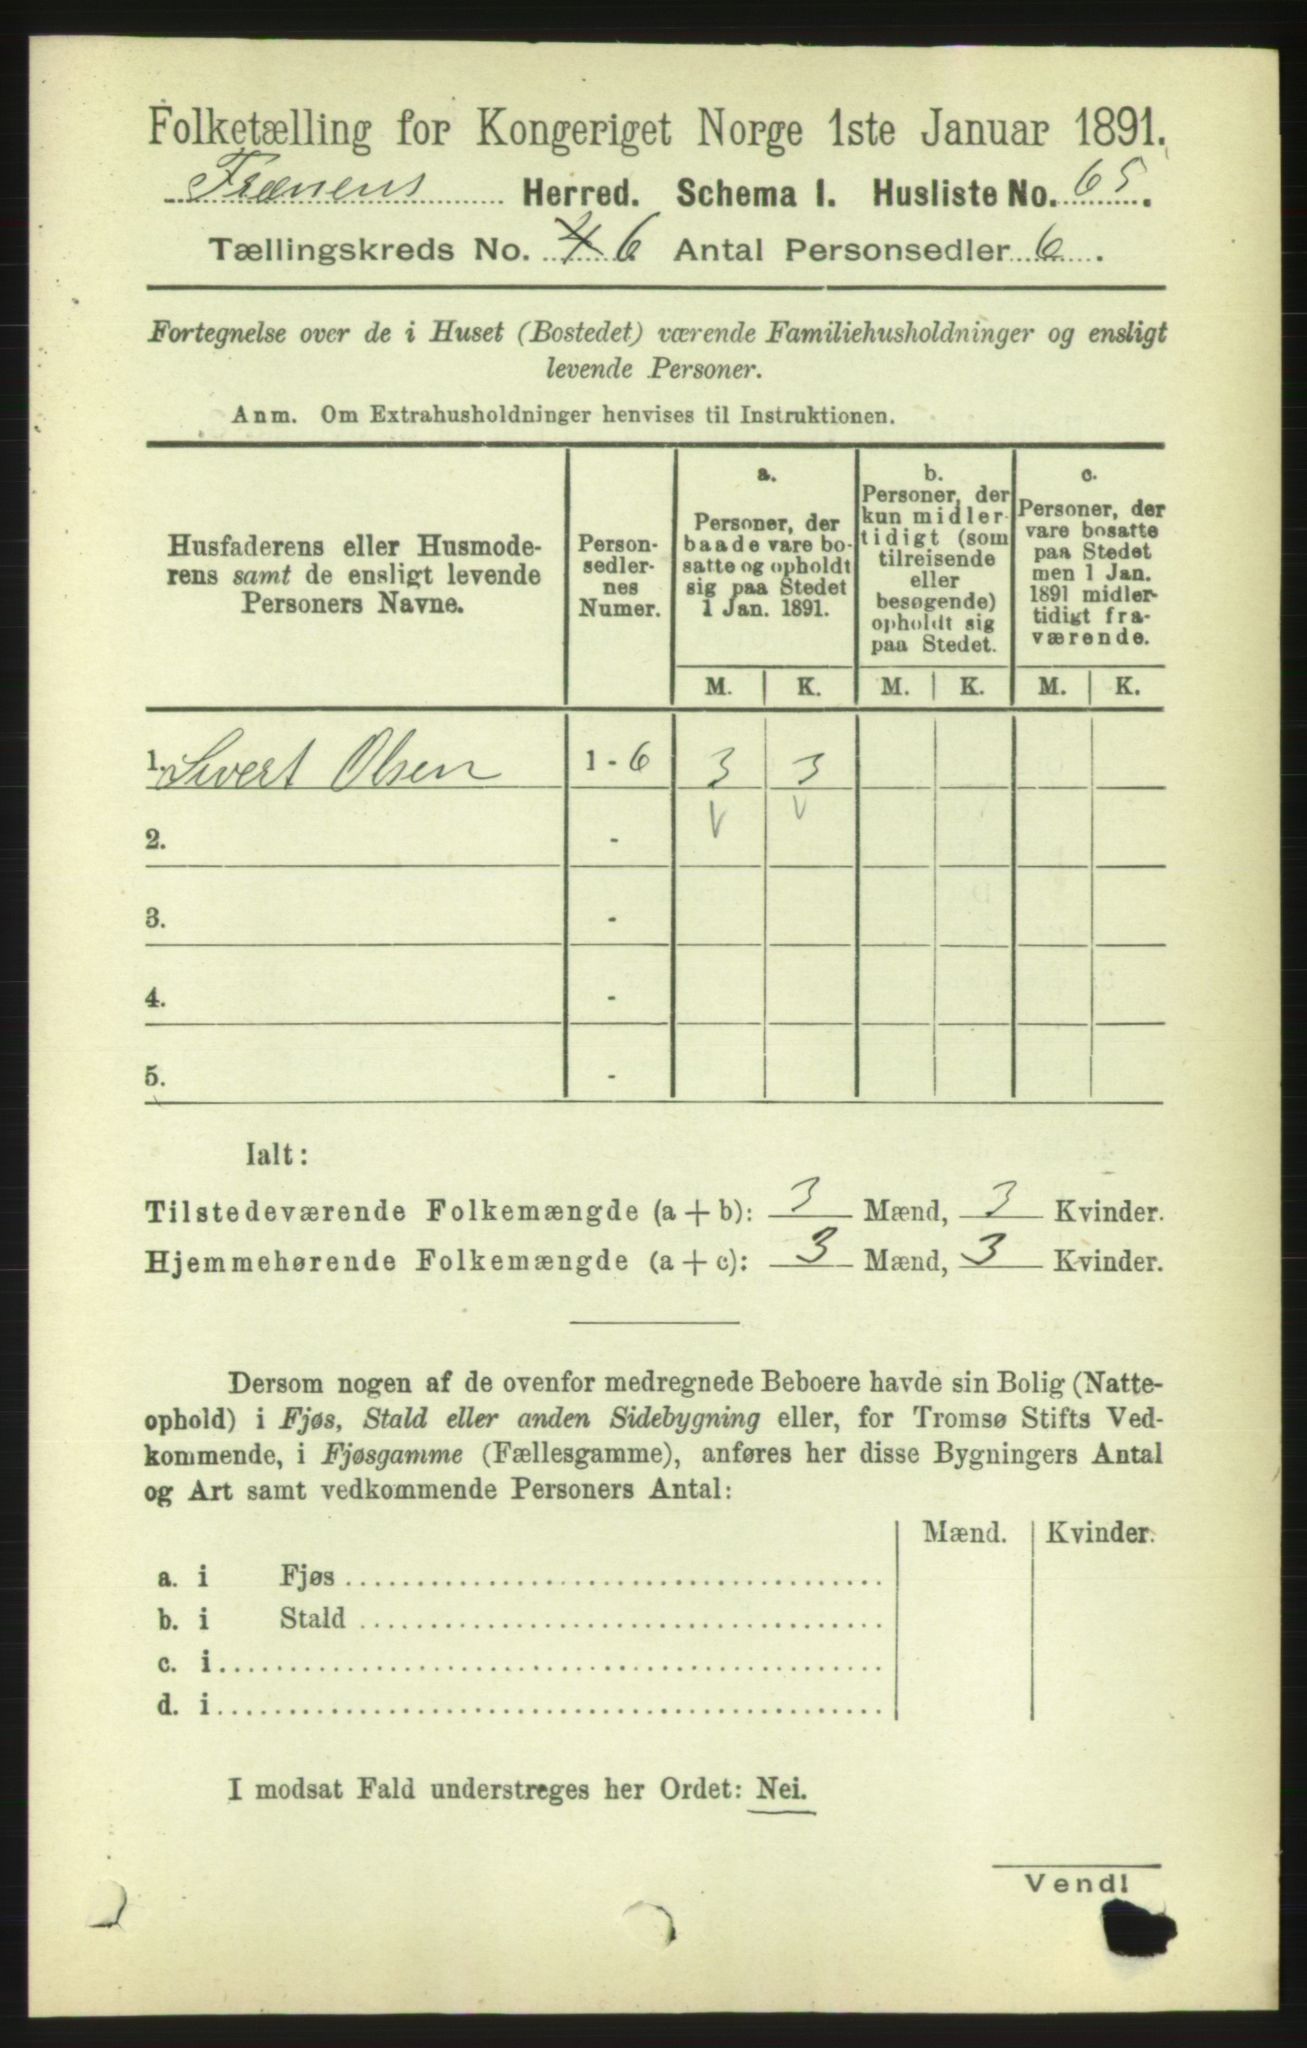 Folketælling for Kongeriget Norge 1ste Januar 1891.
Frænens Herred. Schema I. Husliste No. 65.
Tællingskreds No. 6 Antal Personsedler 6.
Fortegnelse over de i Huset (Bostedet) værende Familiehusholdninger og ensligt
levende Personer.
Anm. Om Extrahusholdninger henvises til Instruktionen.
Husfaderens eller Husmode-
rens samt de ensligt levende
Personers Navne.
Person-
sedler-
nes
Numer.
a.
Personer, der
baade vare bo-
satte og opholdt
sig paa Stedet
1 Jan. 1891.
b.
Personer, der
kun midler-
tidigt (som
tilreisende
eller
besøgende)
opholdt sig
paa Stedet.
c.
Personer, der
vare bosatte
paa Stedet
men 1 Jan.
1891 midler-
tidigt fra-
værende.
M. K. M. K. M. K.
1. Sivert Olsen 1 - 6 3 3
2. - V V
3. -
4. -
5. -
Ialt:
Tilstedeværende Folkemængde (a + b): 3 Mænd, 3 Kvinder.
Hjemmehørende Folkemængde (a + c): 3 Mænd, 3 Kvinder.
Dersom nogen af de ovenfor medregnede Beboere havde sin Bolig (Natte-
ophold) i Fjøs, Stald eller anden Sidebygning eller, for Tromsø Stifts Ved-
kommende, i Fjøsgamme (Fællesgamme), anføres her disse Bygningers Antal
og Art samt vedkommende Personers Antal:
Mænd. Kvinder.
a. i Fjøs
b. i Stald
c. i
d. i
I modsat Fald understreges her Ordet: Nei.
Vend!